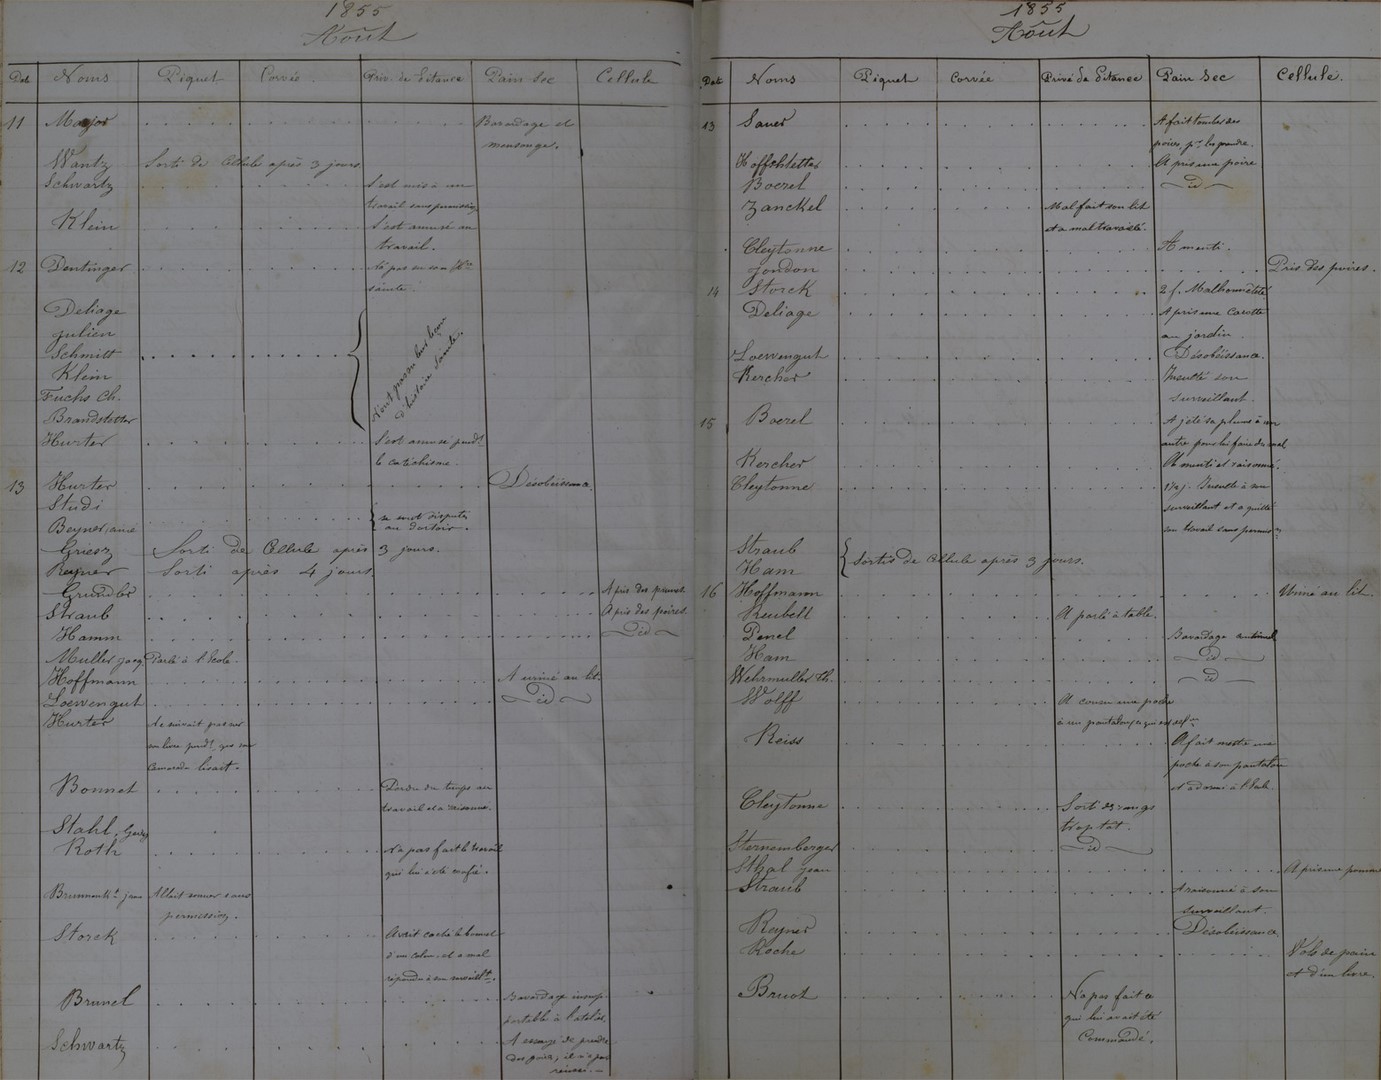 1855
Août
Dat Noms Piquet Corvée Priv. de Pitance Pain Sec Cellule
11 Major Bavardage et
mensonge.
Wantz Sorti de Cellule après 3 jours
Schwartz S'est mis à un
travail sans permission
Klein S'est amusé au
travail.
12 Dentinger N'a pas su son Hre
sainte.
Deliage
Julien
Schmitt
Klein
Fuchs Ch.
Brandstetter
N'ont pas su leur leçon
d'histoire Sainte.
Hurter S'est amusé pendt
le catéchisme.
13 Hurter Désobéissance
Studi
Beyner, ainé
se sont disputés
au Dortoir.
Griesz Sorti de Cellule après 3 jours.
Reyner Sorti après 4 jours.
Grundler A pris des prunes
Straub A pris des poires
Hamm id
Muller Jacq Parlé à l'école.
Hoffmann A uriné au lit.
Loewengut id
Hurter Ne suivait pas sur
son livre pendt que son
Camarade lisait.
Bonnet Perdre du temps au
travail et a raisonné.
Stahl, Georg
Roth N'a pas fait le travail
qui lui a été confié.
Jean Allait sans
permission.
Storck Avait caché le bonnet
d'un colon et a mal
répondu à son surveillt.
Brunel Bavardage insup-
portable à l'atelier.
Schwartz A essayé de prendre
des poires, il n'a pas
réussi.
1855
Août
Dat Noms Piquet Corvée Privé de Pitance Pain Sec Cellule.
13 Sauer A fait tomber des
poires pr les prendre.
Hoffstetter A pris une poire
Boerel id
Zanckel Mal fait son lit
et a mal travaillé.
Cleytonne A menti.
Jondon Pris des poires.
14 Storck 2 f. Malhonnêteté
Deliage A pris une Carotte
au jardin.
Loewengut Désobéissance.
Kercher Insulté son
surveillant.
15 Boerel A jeté sa plume à un
autre pour lui faire du mal
Kercher A menti et raisonné.
Cleytonne Insulté à son
surveillant et a quitté
son travail sans permission
Straub
Ham
Sortis de Cellule après 3 jours.
16 Hoffmann Uriné au lit.
Keubell A parlé à table.
Penel Bavardage continuel
Ham id
Wehrmuller Th. id
Wolff A cousu une poche
à un pantalon, ce qui est défu
Reiss A fait mettre une
poche à son pantalon
et a dormi à l'école.
Cleytonne Sorti des rangs
trop tôt.
Sternemberger id
Sthal Jean A pris une pomme
Straub A raisonné à son
surveillant.
Reyner Désobéissance
Roche Vols de poires
et d'un livre.
Bruot N'a pas fait ce
qui lui avait été
Commandé.